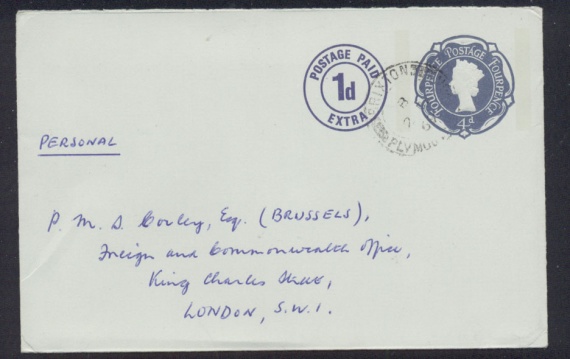 POSTAGE PAID
1d
EXTRA
FOURPENCE POSTAGE FOURPENCE
4d
PLYMOU
PERSONAL
P. M. S. Corley, Esq. (BRUSSELS),
Foreign and Commonwealth Office,
King Charles Street,
LONDON, S.W.1.